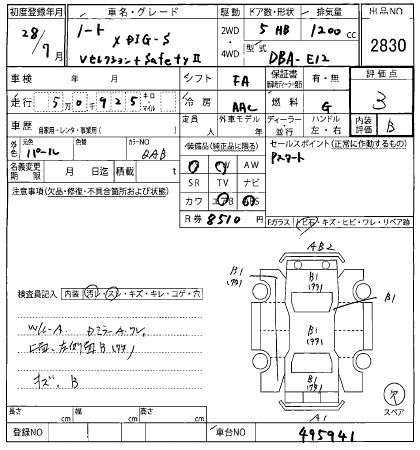 初度登録年月 車名・グレード 駆動 ドア数・形状 排気量 出品NO
28/7月 ノート X DIG-S Vセレクション+Safety II 2WD・4WD 5 HB 1200cc 2830
型式 DBA-E12
車検 年 月 シフト FA 保証書 有・無 評価点
走行 5万0千925 キロ・マイル 冷房 AAC 燃料 G 3
車歴 自家用・レンタ・事業・他 定員 人 外車モデル 年 ディーラー・並行 ハンドル 左・右 内装評価 B
外色 元色 パール 色替 カラーNO QAB
装備品(純正品に限る) セールスポイント(正常に作動するもの)
名義変更期限 月 日迄 積載 t
SR TV ナビ
カワ エアB
Pスタート
注意事項(欠品・修復・不具合箇所および状態)
R券 8510円
Fガラス トビ石・キズ・ヒビ・ワレ・リペア跡
AB2
B1
B1
検査員記入 内装 汚レ・スレ・キズ・キレ・コゲ・穴
B1
B1
B1
キズ、B
スペア
A1
長さ cm 幅 cm 高さ cm
登録NO 車台NO 495941